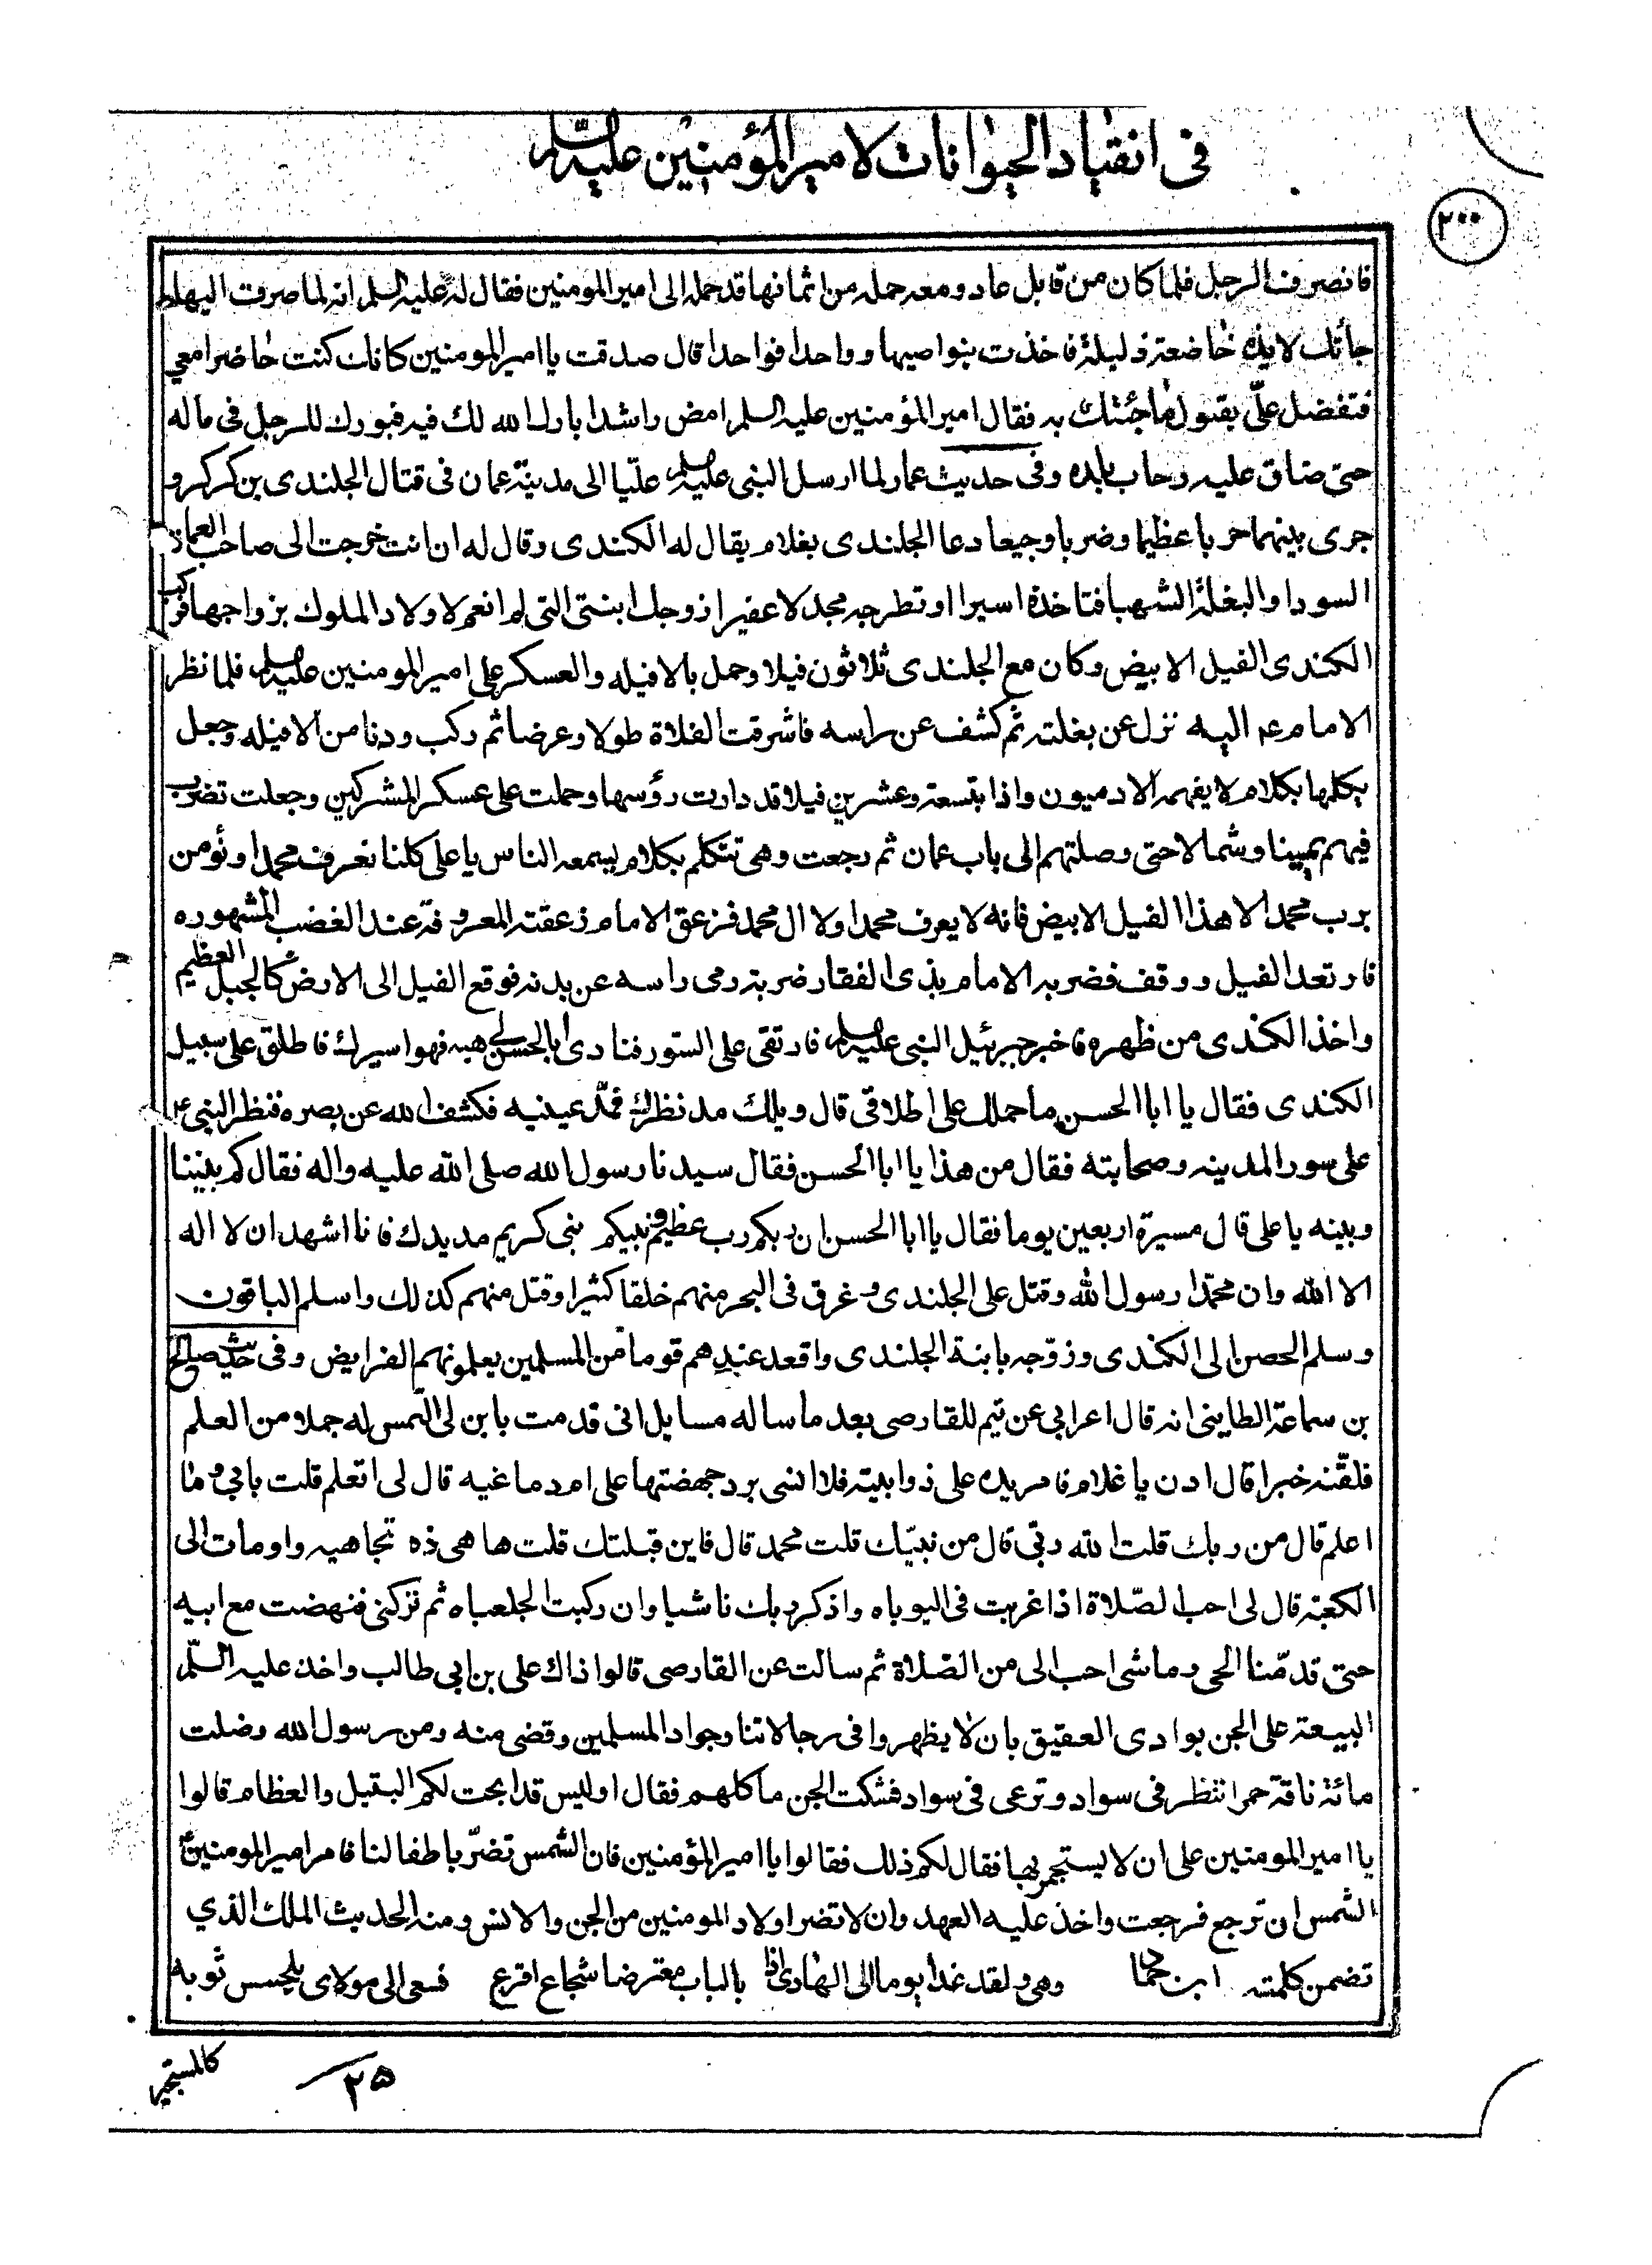 فى انقياد الحيوانات لامير المؤمنين عليه السلام
٢٠٠
فانصرف الرجل فلما كان من قابل عاد ومعه حمله من اثمانها قد حمله الى امير المومنين فقال له عليه السلم انه لما صرت اليها
جائتك لايذة خاضعة ذليلة فاخذت بنواصيها وواحدا فواحدا قال صدقت يا امير المومنين كانك كنت حاضرا معي
فتفضل علىّ بقبول ما جئتك به فقال امير المؤمنين عليه السلم امض راشدا بارك الله لك فيه فبورك للرجل فى ماله
حتى ضاق عليه رحاب بلده وفى حديث عمار لما ارسل النبى عليه السلم عليّا الى مدينة عمان فى قتال الجلندى بن كركر و
جرى بينهما حربا عظيما وضربا وجيعا دعا الجلندى بغلام يقال له الكندى وقال له ان انت خرجت الى صاحب العمامة
السودا والبغلة الشهبا فتاخذه اسيرا او تطرحه مجدلا عفيرا زوجك ابنتى التى لم انعم لاولاد الملوك بزواجها فركب
الكندى الفيل الابيض وكان مع الجلندى ثلاثون فيلا وحمل بالافيله والعسكر على امير المومنين عليه السلم فلما نظر
الامام عم اليه نزل عن بغلته ثم كشف عن راسه فاشرقت الفلاة طولا وعرضا ثم ركب ودنا من الافيله وجعل
يكلمها بكلام لا يفهمه الادميون واذا بتسعة وعشرين فيلا قد دارت رؤسها وحملت على عسكر المشركين وجعلت تضرب
فيهم يمينا وشمالا حتى وصلتهم الى باب عمان ثم رجعت وهى تتكلم بكلام يسمعه الناس يا على كلنا نعرف محمدا ونؤمن
برب محمد الا هذا الفيل الابيض فانه لا يعرف محمدا ولا ال محمد فزعق الامام زعقته المعروفة عند الغضب المشهوره
فارتعد الفيل ووقف فضربه الامام بذى الفقار ضربة رمى راسه عن بدنه فوقع الفيل الى الارض كالجبل العظيم
واخذ الكندى من ظهره فاخبر جبرئيل النبى عليه السلم فارتقى على السور فنادى ابا الحسن هبه لي فهو اسيرك فاطلق على سبيل
الكندى فقال يا ابا الحسن ما حملك على اطلاقى قال ويلك مد نظرك فمدّ عينيه فكشف الله عن بصره فنظر النبى ع
على سور المدينه وصحابته فقال من هذا يا ابا الحسن فقال سيدنا رسول الله صلى الله عليه واله فقال كم بيننا
وبينه يا على قال مسيرة اربعين يوما فقال يا ابا الحسن ان ربكم رب عظيم ونبيكم نبى كريم مد يدك فانا اشهد ان لا اله
الا الله وان محمّدا رسول الله وقتل على الجلندى وغرق فى البحر منهم خلقا كثيرا وقتل منهم كذلك واسلم الباقون
وسلم الحصن الى الكندى وزوّجه بابنة الجلندى واقعد عندهم قوما من المسلمين يعلمونهم الفرايض وفى حديث صالح
بن سماعة الطاينى انه قال اعرابى عن تيم للقارصى بعد ما ساله مسايل انى قدمت بابن لى التمس له جملا من العلم
فلقّنه خبرا قال ادن يا غلام فامر يده على ذوابيته فلا انسى برد جمهضتها على ام دماغيه قال لى اتعلم قلت بابى وما
اعلم قال من ربك قلت الله ربى قال من نبيّك قلت محمد قال فاين قبلتك قلت ها هى ذه تجاهيه واومات الى
الكعبة قال لى احب الصّلاة اذا غربت فى اليوباه واذكر ربك ناشيا وان ركبت الجلعباه ثم تركنى فنهضت مع ابيه
حتى قدمّنا الحى وما شى احب الى من الصّلاة ثم سالت عن القارصى قالوا ذاك على بن ابى طالب واخذ عليه السلّم
البيعة على الجن بوادى العقيق بان لا يظهروا فى رحالاتنا وجواد المسلمين وقضى منه ومن رسول الله وضلت
مائة ناقة حمرا تنظر فى سواد وترعى فى سواد فشكت الجن ماكلهم فقال اوليس قد ابحت لكم البتيل والعظام قالوا
يا امير المومنين على ان لا يستجمر بها فقال لكم ذلك فقالوا يا امير المؤمنين فان الشمس تضرّ باطفالنا فامر امير المومنين ع
الشمس ان ترجع فرجعت واخذ عليه العهد وان لا تضر اولاد المومنين من الجن والانس ومنه الحديث الملك الذي
تضمن كلمته ابن حماد وهى ولقد غدا يوما الى الهادى اذا بالباب معترضا شجاع اقرع فسعى الى مولاى يلحسس ثوبه
كالمستجير
٢٥